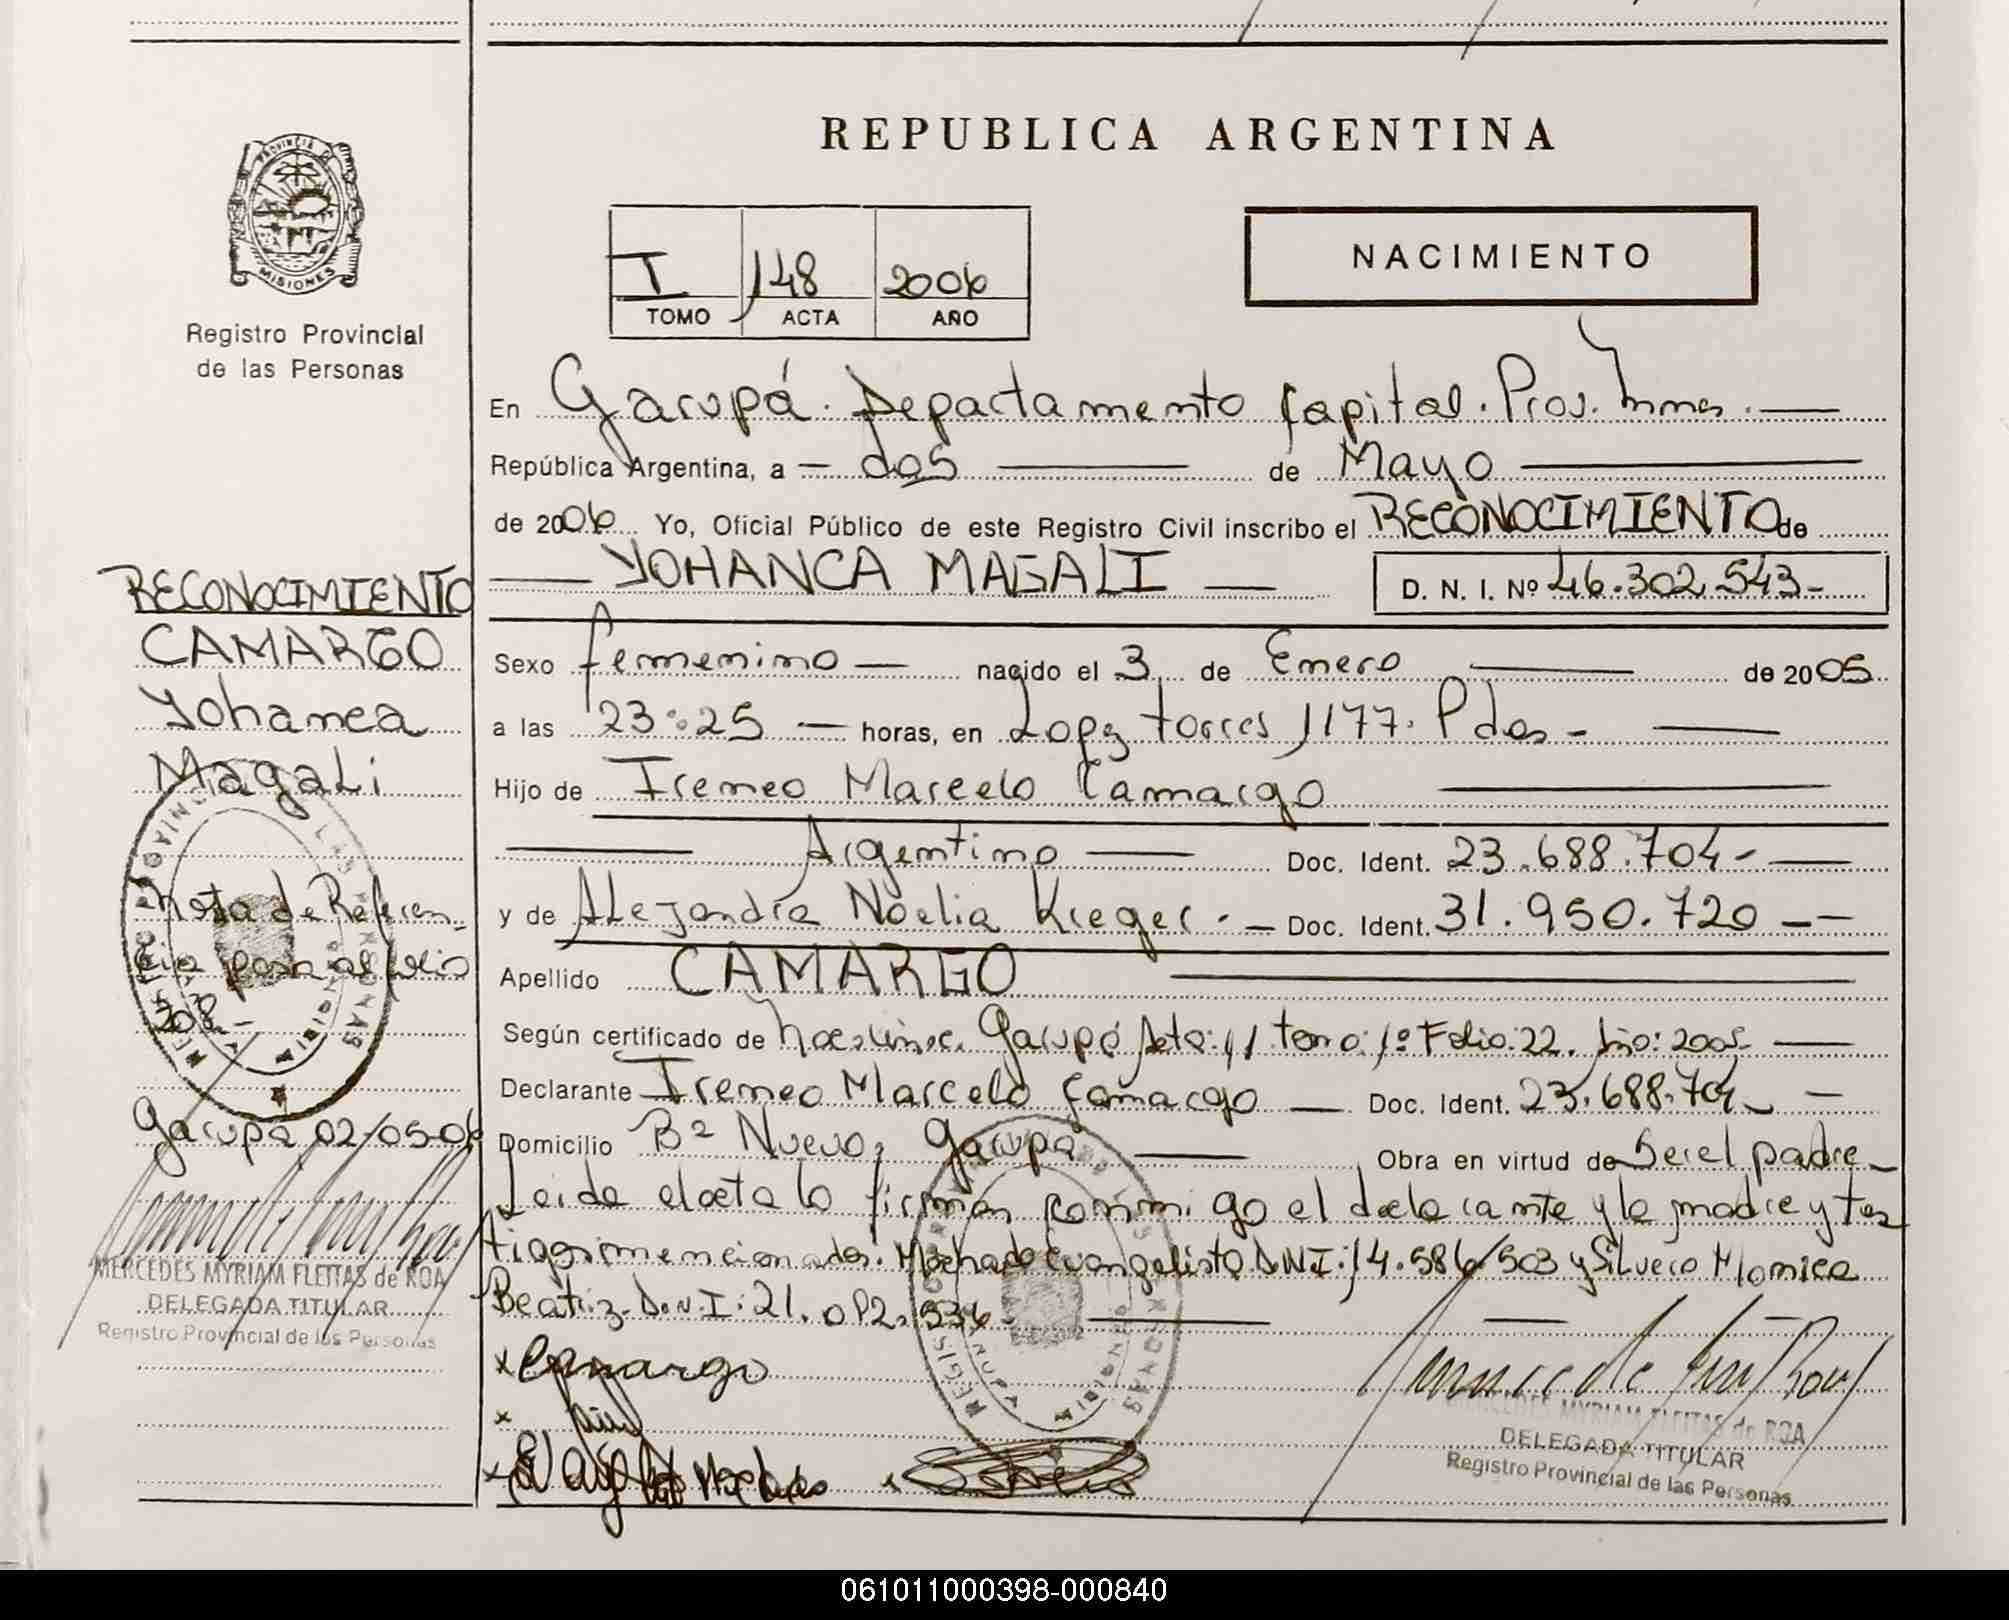 REPUBLICA ARGENTINA
PROVINCIA DE
MISIONES
Registro Provincial
de las Personas
I 148 2006
TOMO ACTA AÑO
NACIMIENTO
En Garupá. Departamento Capital. Prov. Mnes.
República Argentina, a dos de Mayo
de 2006 Yo, Oficial Público de este Registro Civil inscribo el RECONOCIMIENTO de
YOHANCA MAGALI D. N. I. Nº 46.302.543-
Sexo femenino nacido el 3 de Enero de 2005
a las 23:25 horas, en Lopez Torres 1177. Pdas-
Hijo de Ireneo Marcelo Camargo
Argentino Doc. Ident. 23.688.704-
y de Alejandra Noelia Krieger.- Doc. Ident. 31.950.720
Apellido CAMARGO
Según certificado de Garupá Acta: 11 tomo: 1º Folio: 22. Año: 2005-
Declarante Ireneo Marcelo Camargo Doc. Ident. 23.688.704
Domicilio Bº Nuevo, Garupá Obra en virtud de Ser el padre
Leida el acta la firman conmigo el declarante y la madre y tes
tigos mencionados. Machado Evangelista D.N.I: 14.586.503 y Silvero Monica
Beatriz. D.N.I: 21.
x Camargo
x
x Machado x
MERCEDES MYRIAM FLEITAS de ROA
DELEGADA TITULAR
Registro Provincial de las Personas
RECONOCIMIENTO
CAMARGO
Yohanca
Magali
Nota de Referen-
cia para al folio
208.-
Garupá 02/05-06
MERCEDES MYRIAM FLEITAS de ROA
DELEGADA TITULAR
Registro Provincial de las Personas
061011000398-000840